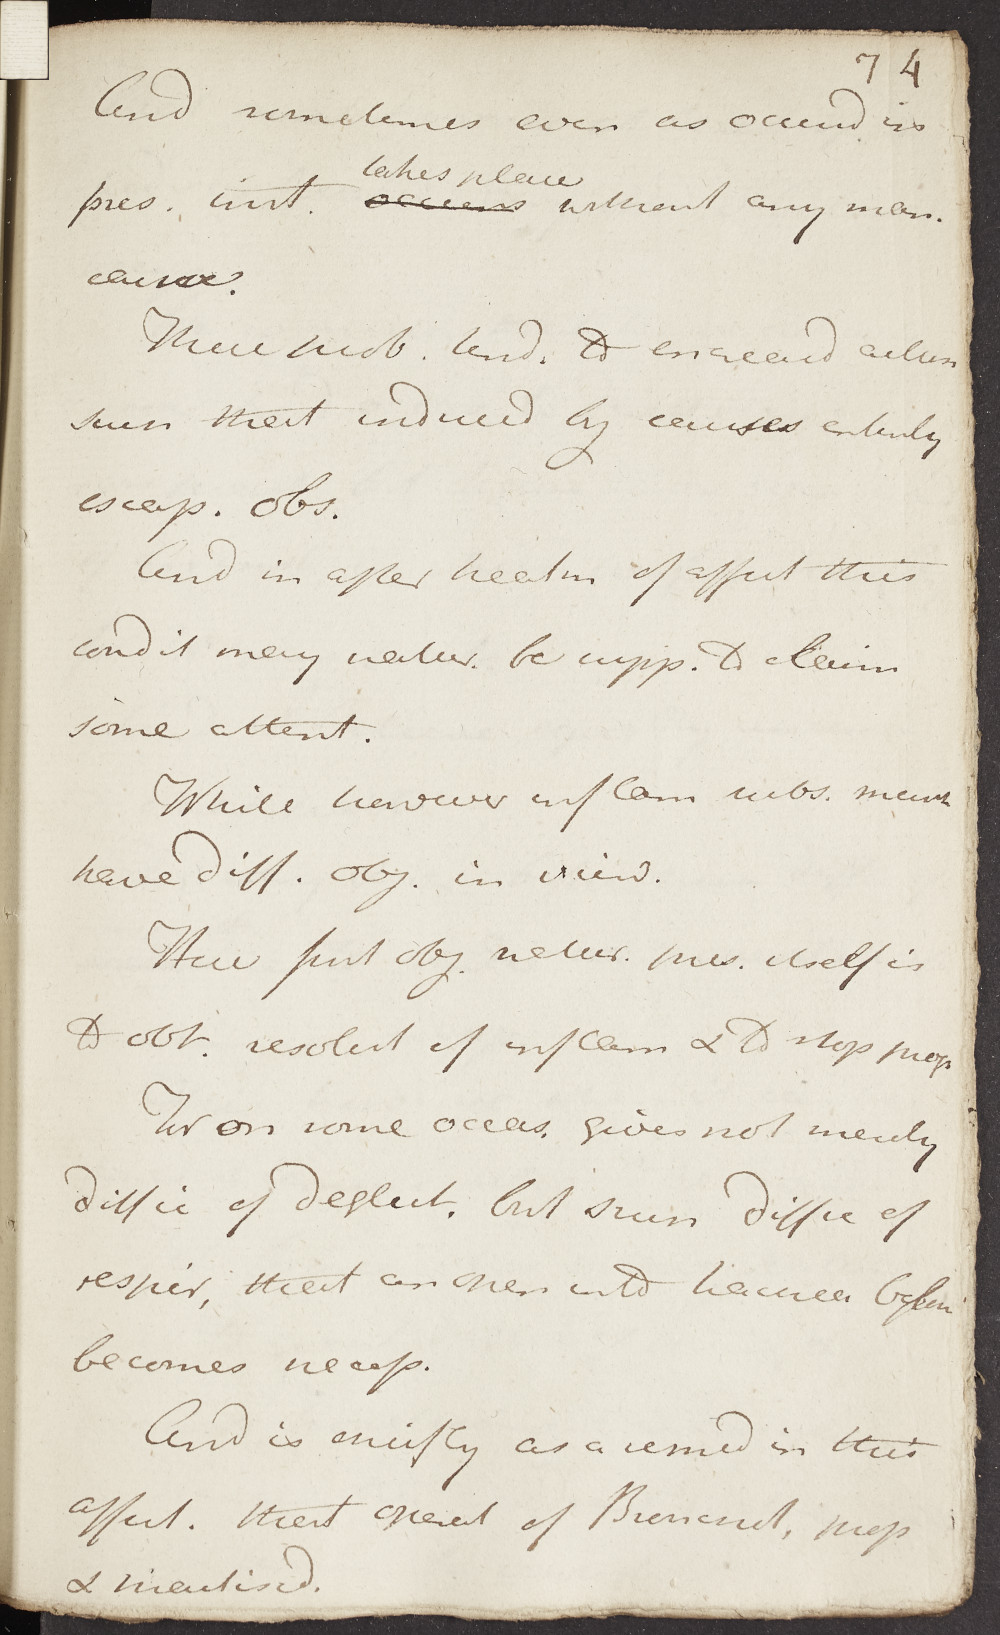 74
And sometimes even as occurred in
takes place
pres. inst. occurs without any man.
cause.
There prob. tend. to increased action
seen that induced by causes entirely
escap. obs.
And in after treatm of affect this
condit may natur. be supp. to claim
some attent.
While however inflam subs. much
have diff. obj. in view.
Here first obj. natur. pres. itself is
to obt. resolut of inflam & to stop prog
For on some occas. gives not merely
difficu of deglut. but such difficu of
respir, that an open into trachea before
becomes necess.
And is chiefly as a remed in this
affect. that operat of Bronchot, prop
& practised.